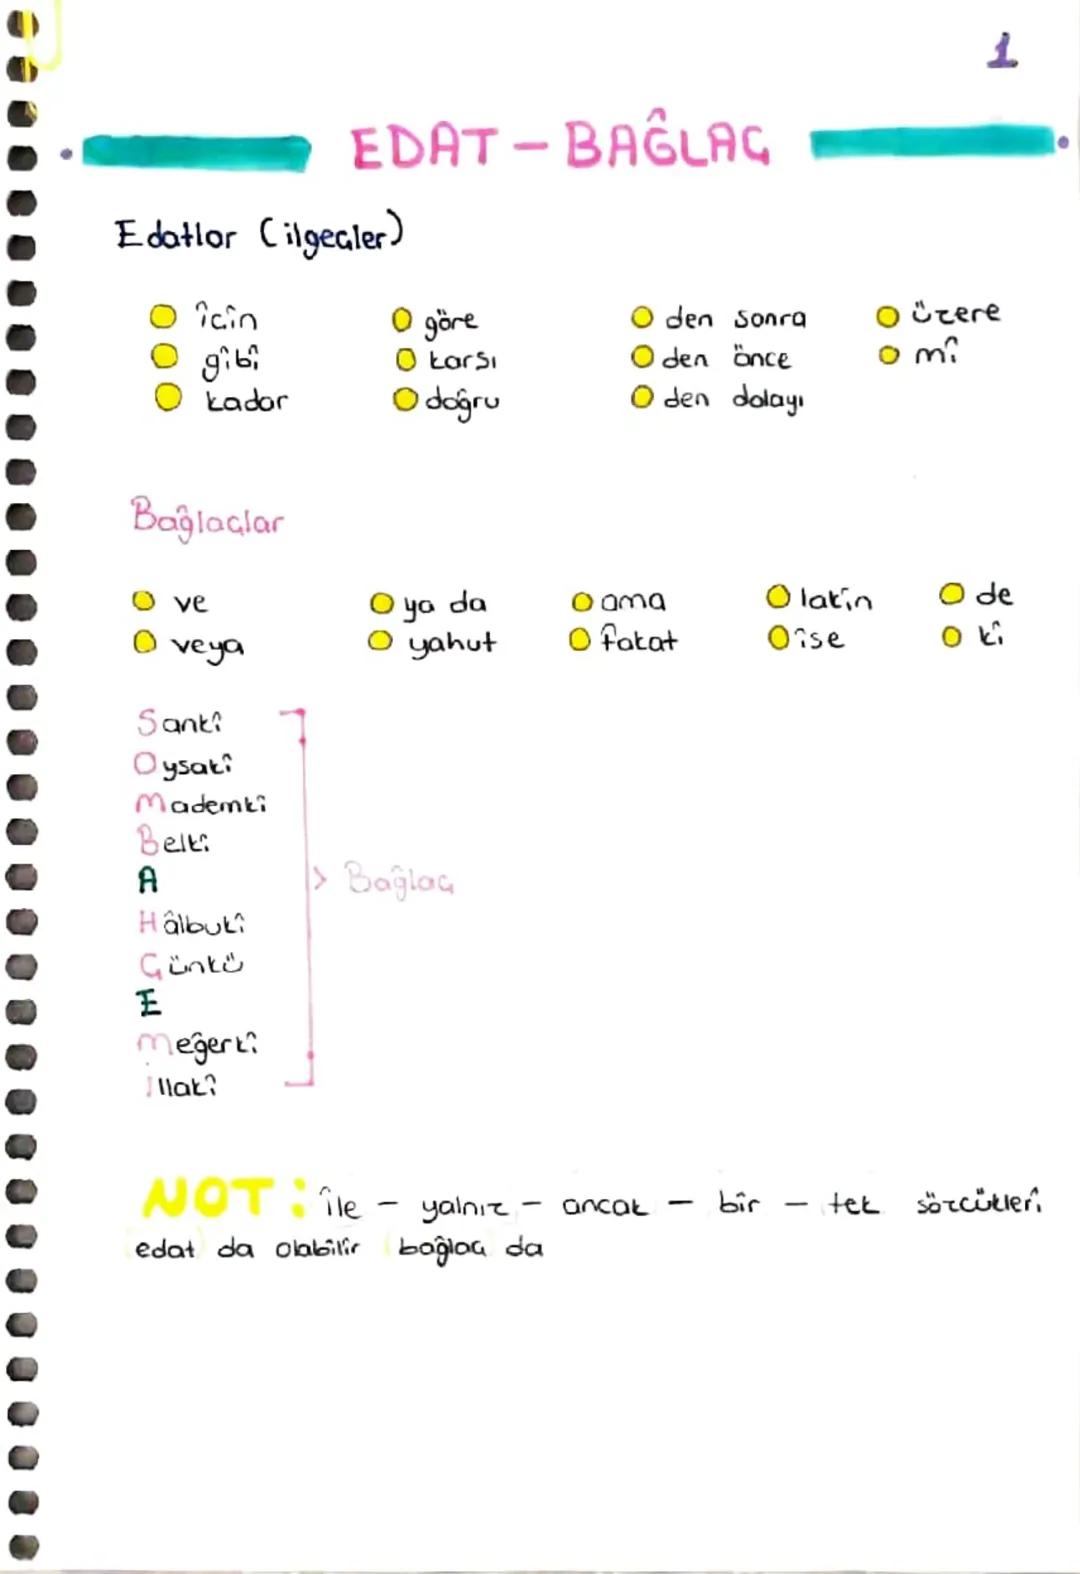 1
EDAT - BAĞLAÇ
Edatlar (ilgeçler)
için göre den sonra üzere
gibi karşı den önce mi
kadar doğru den dolayı
Bağlaçlar
ve ya da ama lakin de
veya yahut fakat ise ki
Sanki
Oysaki
Mademki
Belki
A
Hâlbuki
Çünkü
E
Meğerki
İllaki
> Bağlaç
NOT: ile - yalnız - ancak - bir - tek sözcükleri
edat da olabilir bağlaç da